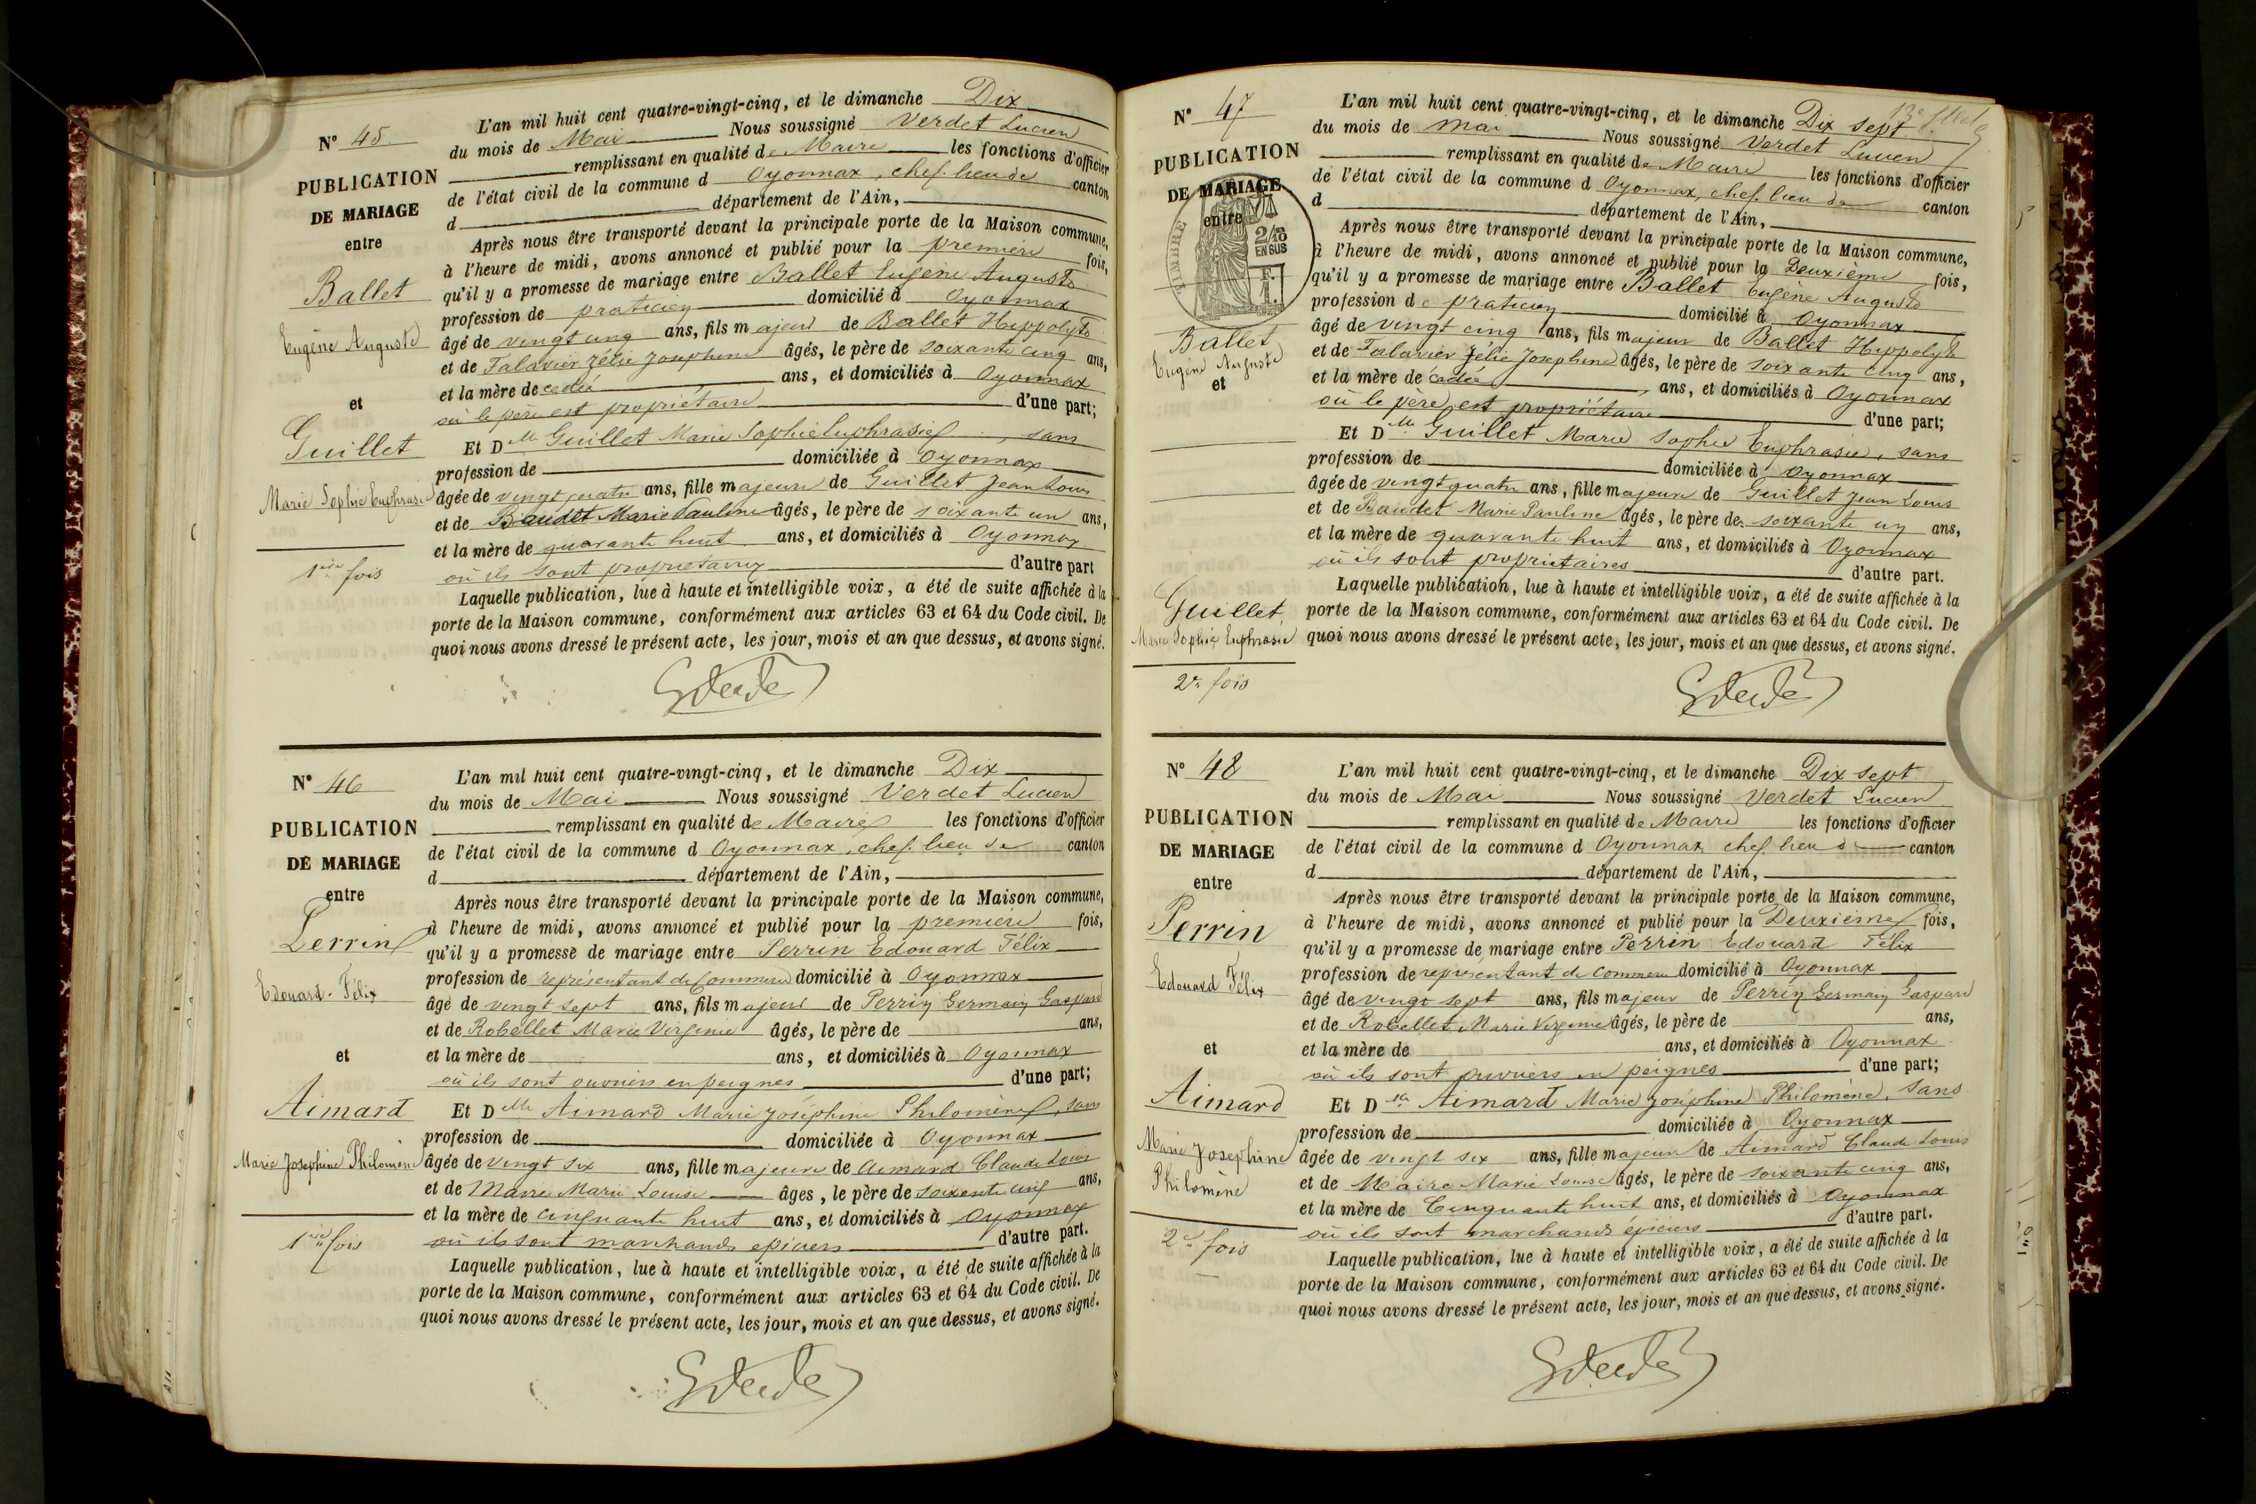 N° 45
PUBLICATION
DE MARIAGE
entre
Ballet
Eugène Auguste
et
Guillet
Marie Sophie Euphrasie
1ère fois
L'an mil huit cent quatre-vingt-cinq, et le dimanche Dix
du mois de Mai Nous soussigné Verdet Lucien
remplissant en qualité de Maire les fonctions d'officier
de l'état civil de la commune d Oyonnax, chef-lieu de canton
d département de l'Ain,
Après nous être transporté devant la principale porte de la Maison commune,
à l'heure de midi, avons annoncé et publié pour la première fois,
qu'il y a promesse de mariage entre Ballet Eugène Auguste
profession de praticien domicilié à Oyonnax
âgé de vingt cinq ans, fils majeur de Ballet Hippolyte
et de Falavier Zélie Josephine âgés, le père de soixante cinq ans,
et la mère de cédée ans, et domiciliés à Oyonnax
où le père est propriétaire d'une part;
Et D lle Guillet Marie Sophie Euphrasie, sans
profession de domiciliée à Oyonnax
âgée de vingt quatre ans, fille majeure de Guillet Jean Louis
et de Baudet Marie Pauline âgés, le père de soixante un ans,
et la mère de quarante huit ans, et domiciliés à Oyonnax
où ils sont propriétaires d'autre part
Laquelle publication, lue à haute et intelligible voix, a été de suite affichée à la
porte de la Maison commune, conformément aux articles 63 et 64 du Code civil. De
quoi nous avons dressé le présent acte, les jour, mois et an que dessus, et avons signé.
N° 46
PUBLICATION
DE MARIAGE
entre
Perrin
Edouard Félix
et
Aimard
Marie Josephine Philomène
1ère fois
L'an mil huit cent quatre-vingt-cinq, et le dimanche Dix
du mois de Mai Nous soussigné Verdet Lucien
remplissant en qualité de Maire les fonctions d'officier
de l'état civil de la commune d Oyonnax, chef-lieu de canton
d département de l'Ain,
Après nous être transporté devant la principale porte de la Maison commune,
à l'heure de midi, avons annoncé et publié pour la première fois,
qu'il y a promesse de mariage entre Perrin Edouard Félix
profession de représentant de Commerce domicilié à Oyonnax
âgé de vingt sept ans, fils majeur de Perrin Germain Gaspard
et de Robellet Marie Virginie âgés, le père de ans,
et la mère de ans, et domiciliés à Oyonnax
où ils sont ouvriers en peignes d'une part;
Et D lle Aimard Marie Joséphine Philomène, sans
profession de domiciliée à Oyonnax
âgée de vingt six ans, fille majeure de Aimard Claude Louis
et de Maire Marie Louise âges, le père de soixante cinq ans,
et la mère de cinquante huit ans, et domiciliés à Oyonnax
où ils sont marchands épiciers d'autre part.
Laquelle publication, lue à haute et intelligible voix, a été de suite affichée à la
porte de la Maison commune, conformément aux articles 63 et 64 du Code civil. De
quoi nous avons dressé le présent acte, les jour, mois et an que dessus, et avons signé.
N° 47
PUBLICATION
DE MARIAGE
entre
TIMBRE
2/10
EN SUS
Ballet
Eugène Auguste
et
Guillet
Marie Sophie Euphrasie
2e fois
L'an mil huit cent quatre-vingt-cinq, et le dimanche Dix sept
du mois de mai Nous soussigné Verdet Lucien
remplissant en qualité de Maire les fonctions d'officier
de l'état civil de la commune d Oyonnax, chef-lieu de canton
d département de l'Ain,
Après nous être transporté devant la principale porte de la Maison commune,
à l'heure de midi, avons annoncé et publié pour la Deuxième fois,
qu'il y a promesse de mariage entre Ballet Eugène Auguste
profession de praticien domicilié à Oyonnax
âgé de vingt cinq ans, fils majeur de Ballet Hippolyte
et de Falavier Zélie Josephine âgés, le père de soixante cinq ans,
et la mère de cédée, ans, et domiciliés à Oyonnax
où le père est propriétaire d'une part;
Et D lle Guillet Marie Sophie Euphrasie, sans
profession de domiciliée à Oyonnax
âgée de vingt quatre ans, fille majeure de Guillet Jean Louis
et de Baudet Marie Pauline âgés, le père de soixante un ans,
et la mère de quarante huit ans, et domiciliés à Oyonnax
où ils sont propriétaires d'autre part.
Laquelle publication, lue à haute et intelligible voix, a été de suite affichée à la
porte de la Maison commune, conformément aux articles 63 et 64 du Code civil. De
quoi nous avons dressé le présent acte, les jour, mois et an que dessus, et avons signé.
N° 48
PUBLICATION
DE MARIAGE
entre
Perrin
Edouard Félix
et
Aimard
Marie Josephine
Philomène
2e fois
L'an mil huit cent quatre-vingt-cinq, et le dimanche Dix sept
du mois de Mai Nous soussigné Verdet Lucien
remplissant en qualité de Maire les fonctions d'officier
de l'état civil de la commune d Oyonnax chef-lieu de canton
d département de l'Ain,
Après nous être transporté devant la principale porte de la Maison commune,
à l'heure de midi, avons annoncé et publié pour la Deuxième fois,
qu'il y a promesse de mariage entre Perrin Edouard Félix
profession de représentant de Commerce domicilié à Oyonnax
âgé de vingt sept ans, fils majeur de Perrin Germain Gaspard
et de Robellet Marie Virginie âgés, le père de ans,
et la mère de ans, et domiciliés à Oyonnax
où ils sont ouvriers en peignes d'une part;
Et D lle Aimard Marie Joséphine Philomène, sans
profession de domiciliée à Oyonnax
âgée de vingt six ans, fille majeure de Aimard Claude Louis
et de Maire Marie Louise âgés, le père de soixante cinq ans,
et la mère de Cinquante huit ans, et domiciliés à Oyonnax
où ils sont marchands épiciers d'autre part.
Laquelle publication, lue à haute et intelligible voix, a été de suite affichée à la
porte de la Maison commune, conformément aux articles 63 et 64 du Code civil. De
quoi nous avons dressé le présent acte, les jour, mois et an que dessus, et avons signé.